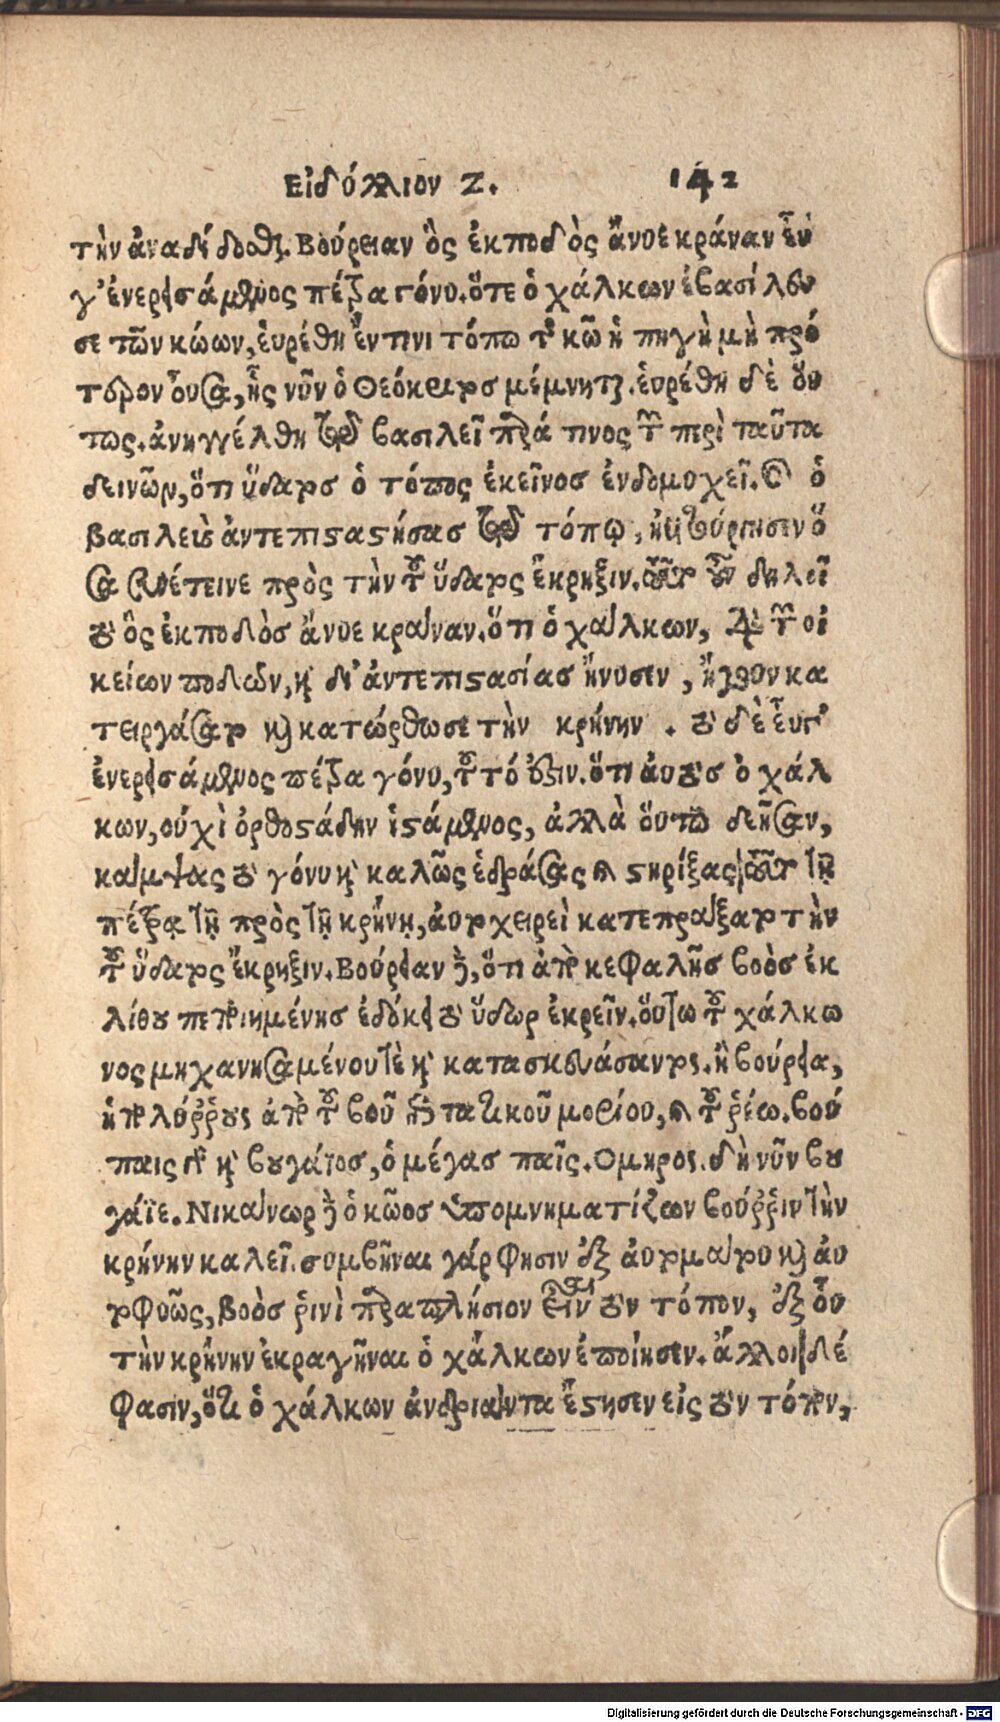 Εἰδύλλιον Ζ. 142
τὴν ἀναδίδοσθαι. Βούρειαν ὃς ἐκ ποδὸς ἄνυε κράναν εὖ
γ' ἐνερεισάμενος πέτρα γόνυ. ὅτε ὁ χάλκων ἐβασίλευ
σε τῶν κώων, εὑρέθη ἔν τινι τόπω τῆ κῶ ἡ πηγὴ μὴ πρό
τερον οὖσα, ἧς νῦν ὁ Θεόκριτος μέμνηται. εὑρέθη δὲ οὕ
τως. ἀνηγγέλθη τῷ βασιλεῖ παρά τινος τῶν περὶ ταῦτα
δεινῶν, ὅτι ὕδατος ὁ τόπος ἐκεῖνος ἐνδομυχεῖ. ὁ
βασιλεὺς ἀντεπιστατήσας τῷ τόπῳ, ὅ
σα συνέτεινε πρὸς τὴν τοῦ ὕδατος ἔκρηξιν. ταῦτα γοῦν δηλοῖ
τὸ ὃς ἐκ ποδὸς ἄνυε κράναν. ὅτι ὁ χάλκων, διὰ τῶν οἰ
κείων ποδῶν, καὶ δι' ἀντεπιστασίας ἤνυσεν, ἤγουν κα
τειργάσατο καὶ κατώρθωσε τὴν κρήνην. τὸ δὲ εὖ γ'
ἐνερεισάμενος πέτρα γόνυ, τοῦτό ἐστιν. ὅτι αὐτὸς ὁ χάλ
κων, οὐχὶ ὀρθοστάδην ἱστάμενος, ἀλλὰ οὕτω δεῆσαν,
κάμψας τὸ γόνυ καὶ καλῶς ἑδράσας καὶ στηρίξας, τῇ
πέτρᾳ τῇ πρὸς τῇ κρήνῃ, αὐτοχειρεὶ κατεπράξατο τὴν
τοῦ ὕδατος ἔκρηξιν. Βούρειαν δὲ, ὅτι ἀπὸ κεφαλῆς βοὸς ἐκ
λίθου πεποιημένης ἐδόκει τὸ ὕδωρ ἐκρεῖν. οὕτω τοῦ χάλκω
νος μηχανησαμένου τε καὶ κατασκευάσαντος. ἢ βούρεια,
ἡ πολύρρους ἀπὸ τοῦ βοῦ ἐπιτατικοῦ μορίου, καὶ τοῦ ῥέω. βού
παις γὰρ καὶ βουγάϊος, ὁ μέγας παῖς. Ὅμηρος. δὴ νῦν βου
γάϊε. Νικάνωρ δὲ ὁ κῶος ὑπομνηματίζων βούρριν τὴν
κρήνην καλεῖ. συμβῆναι γάρ φησιν ἐξ αὐτομάτου καὶ αὐ
τοφυῶς, βοὸς ῥινὶ παραπλήσιον εἶναι τὸν τόπον, ἐξ οὗ
τὴν κρήνην ἐκραγῆναι ὁ χάλκων ἐποίησεν. ἄλλοι δέ
φασιν, ὅτι ὁ χάλκων ἀνδριάντα ἔστησεν εἰς τὸν τόπον,
Digitalisierung gefördert durch die Deutsche Forschungsgemeinschaft - DFG